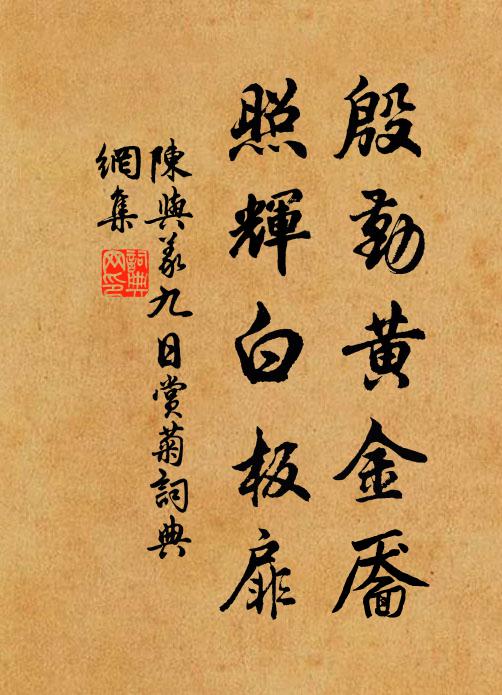 殷勤黄金靥
照輝白板扉
陳與義九日賞菊詞典
網集
詞典
网印